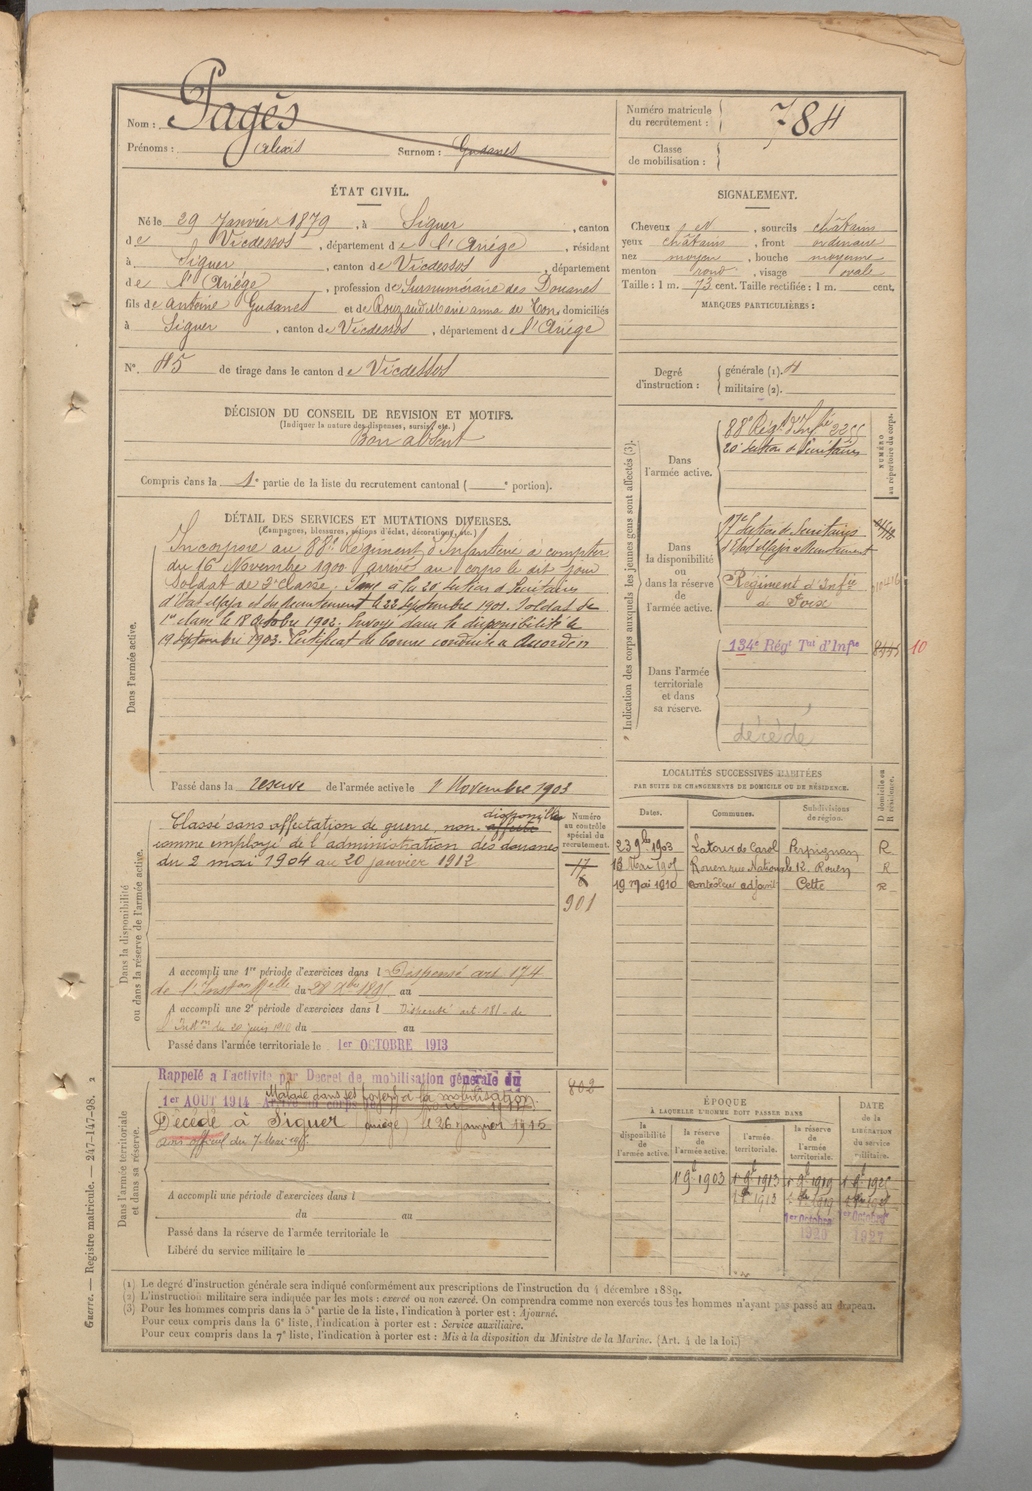 Nom : Pagès
Prénoms : Alexis Surnom : Gudanes
Numéro matricule
du recrutement : 784
Classe
de mobilisation :
ÉTAT CIVIL.
Né le 29 Janvier 1879, à Siguer, canton
de Vicdessos, département de l'Ariège, résidant
à Siguer, canton de Vicdessos, département
de l'Ariège, profession de Surnuméraire des Douanes
fils de Antoine Gudanes et de Rouzaud Marie anna de Con, domiciliés
à Siguer, canton de Vicdessos, département de l'Ariège
N° 45 de tirage dans le canton de Vicdessos
SIGNALEMENT.
Cheveux et, sourcils châtains
yeux châtains, front ordinaire
nez moyen, bouche moyenne
menton rond, visage ovale
Taille : 1 m. 73 cent. Taille rectifiée : 1 m. cent.
MARQUES PARTICULIÈRES :
Degré
d'instruction :
générale (1).
militaire (2).
DÉCISION DU CONSEIL DE REVISION ET MOTIFS.
(Indiquer la nature des dispenses, sursis, etc.)
Bon absent
Compris dans la 1e partie de la liste du recrutement cantonal ( e portion).
DÉTAIL DES SERVICES ET MUTATIONS DIVERSES.
(Campagnes, blessures, actions d'éclat, décorations, etc.)
Dans l'armée active.
Incorporé au 88e Régiment d'Infanterie à compter
du 16 Novembre 1900 arrivé au corps le dit jour
Soldat de 2e classe. Passé à la 20e Section de Secrétaires
d'Etat Major et du Recrutement le 22 septembre 1901. Soldat de
1re classe le 18 octobre 1902. Envoyé dans la disponibilité le
19 septembre 1903. Certificat de bonne conduite a accordé
Passé dans la réserve de l'armée active le 1 Novembre 1903
Indication des corps auxquels les jeunes gens sont affectés (3).
NUMÉRO
au répertoire du corps.
Dans
l'armée active.
88e Régt d'Infie
20e Section de Secrétaires
Dans
la disponibilité
ou
dans la réserve
de
l'armée active.
17e Section de Secrétaires
d'Etat Major et Recrutement
Régiment d'Infie
de Foix
Dans l'armée
territoriale
et dans
sa réserve.
134e Régt Tal d'Infie 10
décédé
LOCALITÉS SUCCESSIVES HABITÉES
PAR SUITE DE CHANGEMENTS DE DOMICILE OU DE RÉSIDENCE.
Dates. Communes. Subdivisions
de région. D domicile ou
R résidence.
23 9bre 1903 Latour de Carol Perpignan R
Rouen rue Nationale 12. Rouen R
19 Mai 1910 contrôleur adjoint Cette R
Dans la disponibilité
ou dans la réserve de l'armée active.
Numéro
au contrôle
spécial du
recrutement.
901
Classé sans affectation de guerre, non disponible
comme employé de l'administration des douanes
du 2 mai 1904 au 20 janvier 1912
A accompli une 1re période d'exercices dans l Dispensé art 174
de l'Inston Melle du au
A accompli une 2e période d'exercices dans l Dispensé art. 181 de
du au
Passé dans l'armée territoriale le 1er OCTOBRE 1913
Dans l'armée territoriale
et dans sa réserve.
Rappelé à l'activité par Décret de mobilisation générale du
1er AOUT 1914 Malade dans ses foyers à la mobilisation.
Décédé à Siguer (ariège) le 26 janvier 1915
avis officiel du 7 Mai
802
A accompli une période d'exercices dans l
du au
Passé dans la réserve de l'armée territoriale le
Libéré du service militaire le
ÉPOQUE
À LAQUELLE L'HOMME DOIT PASSER DANS
DATE
de la
LIBÉRATION
du service
militaire.
la
disponibilité
de
l'armée active.
la réserve
de
l'armée active.
l'armée
territoriale.
la réserve
de
l'armée
territoriale.
1er 9bre 1903 1er 9bre 1913 1er 9bre 1919
1er Octobre 1920 1er Octobre 1927
(1) Le degré d'instruction générale sera indiqué conformément aux prescriptions de l'instruction du 4 décembre 1889.
(2) L'instruction militaire sera indiquée par les mots : exercé ou non exercé. On comprendra comme non exercés tous les hommes n'ayant pas passé au drapeau.
(3) Pour les hommes compris dans la 5e partie de la liste, l'indication à porter est : Ajourné.
Pour ceux compris dans la 6e liste, l'indication à porter est : Service auxiliaire.
Pour ceux compris dans la 7e liste, l'indication à porter est : Mis à la disposition du Ministre de la Marine. (Art. 4 de la loi.)
Guerre. — Registre matricule. — 247-147-98. 2